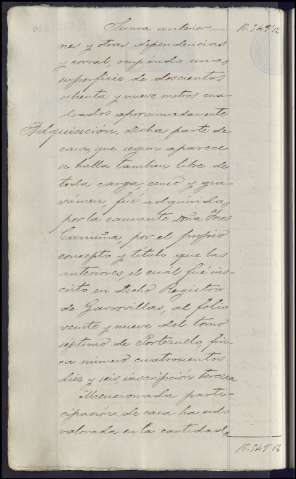 Suma anterior 
nes y otras dependencias
y corral, ocupando una
superficie de doscientos
ochenta y nueve metros cua-
drados aproximadamente
Adquisición, Dicha parte de
casa, que segun aparece
se halla tambien libre de
toda carga, censo y gra-
vámen, fué adquirida
por la causante doña Ines
por el propio
concepto y titulo que las
anteriores, el cual fué ins-
crito en dicho Registro
de Garrovillas, al folio
veinte y nueve del tomo
septimo de Portezuelo, fin-
ca número cuatrocientos
diez y seis, inscripción tercera
Mencionada parti-
cipación de casa ha sido
valorada en la cantidad